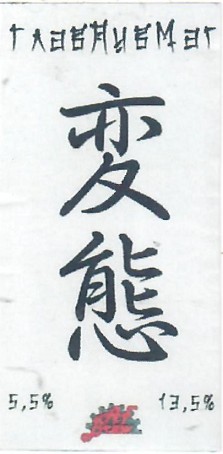 ГлавПивМаг
変態
5,5% 13,5%